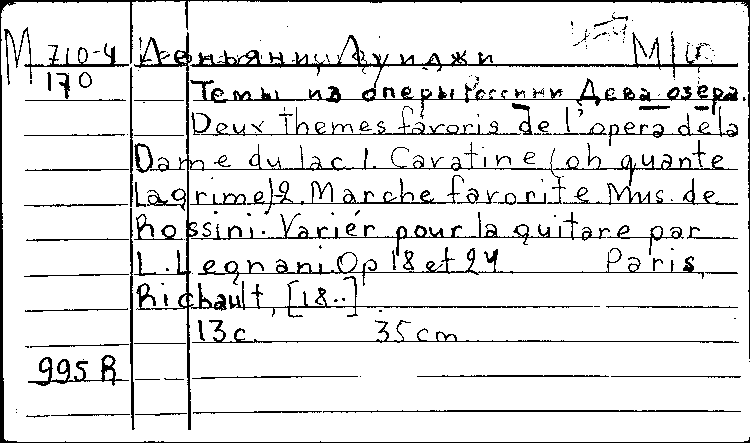 M 710-4 Леньяни, Луиджи M/5
170
Темы из оперы Россини Дева озера.
Deux themes favoris de l'opera de la
Dame du lac 1. Cavatine (oh quante
lagrime) 2. Marche favorite Mus. de
Rossini. Variér pour la guitare par
L. Legnani. Op 18 et 24 Paris,
Richault, [18..]
13 c. 35 cm
995 R